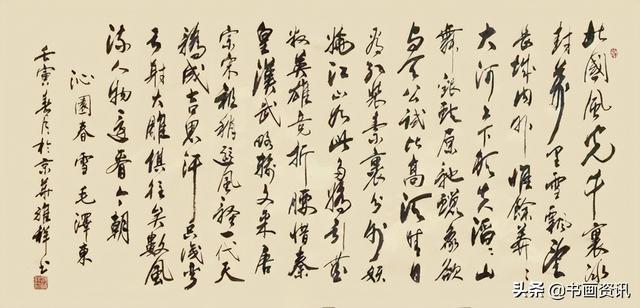 北國風光千里冰
封萬里雪飄望
長城內外惟餘莽〻
大河上下頓失滔〻山
舞銀蛇原馳蠟象欲
與天公試比高須晴日
看紅裝素裹分外妖
嬈江山如此多嬌引無
數英雄競折腰惜秦
皇漢武略輸文采唐
宗宋祖稍遜風騷一代天
驕成吉思汗只識彎
弓射大雕俱往矣數風
流人物還看今朝
沁園春雪毛澤東
壬寅春月於京華祥書
头条 @书画资讯